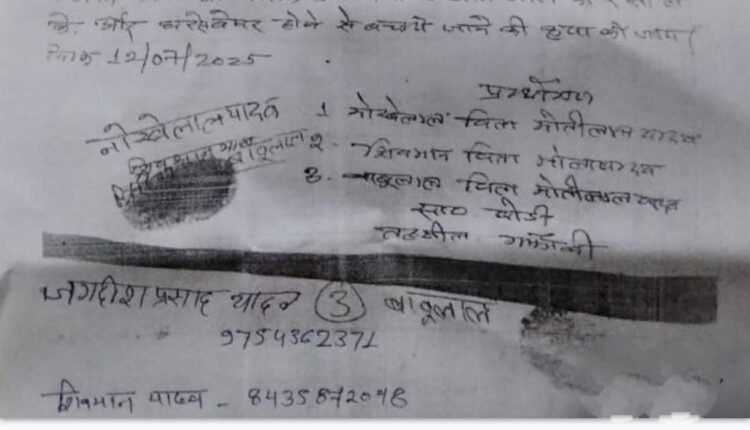 के. और घरसेबेघर होने से बचाये जाने की कृपा की जाय।
दिनांक 12/07/2025
प्रार्थीगण
नोखेलाल यादव
1 नोखेलाल पिता मोतीलाल यादव
शिवमान यादव बाबूलाल
2. शिवमान पिता भोला यादव
3. बाबूलाल पिता मोतीलाल यादव
सा०
तहसील
जगदीश प्रसाद यादव ③ बाबूलाल
9754362371
शिवमान यादव - 8435872098